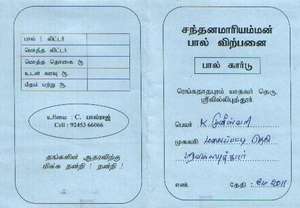 பால் 1 லிட்டர்
மொத்த லிட்டர்
மொத்த தொகை ரூ.
உடன் வரவு ரூ.
மீதம் பற்று ரூ.
உரிமை : C. பால்ராஜ்
Cell : 92453 66066
தங்களின் ஆதரவிற்கு
மிக்க நன்றி ! நன்றி !
சந்தனமாரியம்மன்
பால் விற்பனை
பால் கார்டு
ரெங்கநாதபுரம் யாதவர் தெரு,
ஸ்ரீவில்லிபுத்தூர்
பெயர் K
முகவரி
எண். தேதி : மே 2011